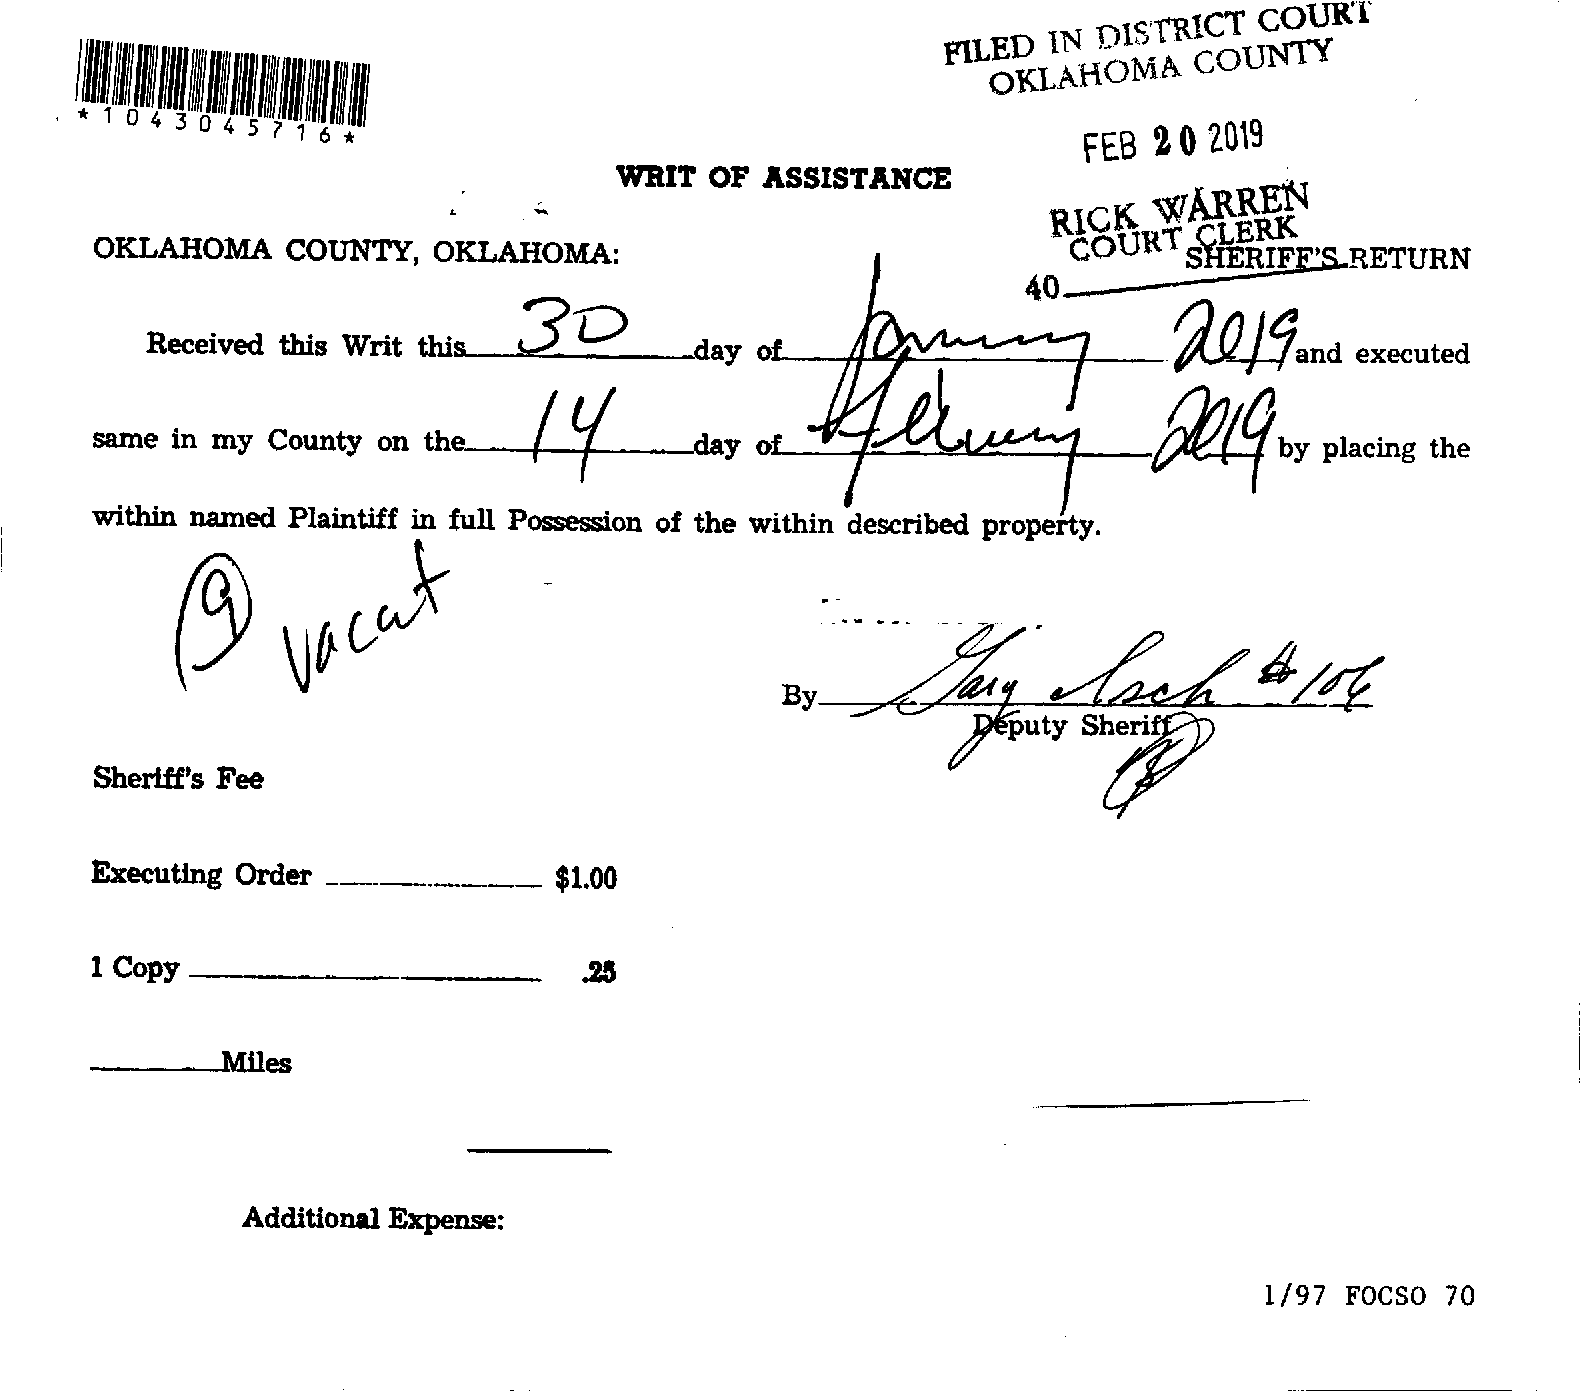 FILED IN DISTRICT COURT
OKLAHOMA COUNTY
*1043045716*
FEB 20 2019
WRIT OF ASSISTANCE
RICK WARREN
COURT CLERK
OKLAHOMA COUNTY, OKLAHOMA:
SHERIFF'S RETURN
40
Received this Writ this 30 day of January 2019 and executed
same in my County on the 14 day of February 2019 by placing the
within named Plaintiff in full Possession of the within described property.
vacant
By Gary #106
Deputy Sheriff
Sheriff's Fee
Executing Order $1.00
1 Copy .25
Miles
Additional Expense:
1/97 FOCSO 70